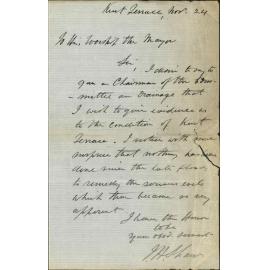 Kent Terrace, Nov. 24
To His Worship the Mayor
Sir, I desire to say to
you as Chairman of the Com-
-mittee on Drainage that
I wish to give evidence as
to the condition of Kent
Terrace. I notice with some
surprise that nothing has been
done since the late floods
to remedy the serious evils
which then became so very
apparent
I have the Honor
to be
your obed. servant